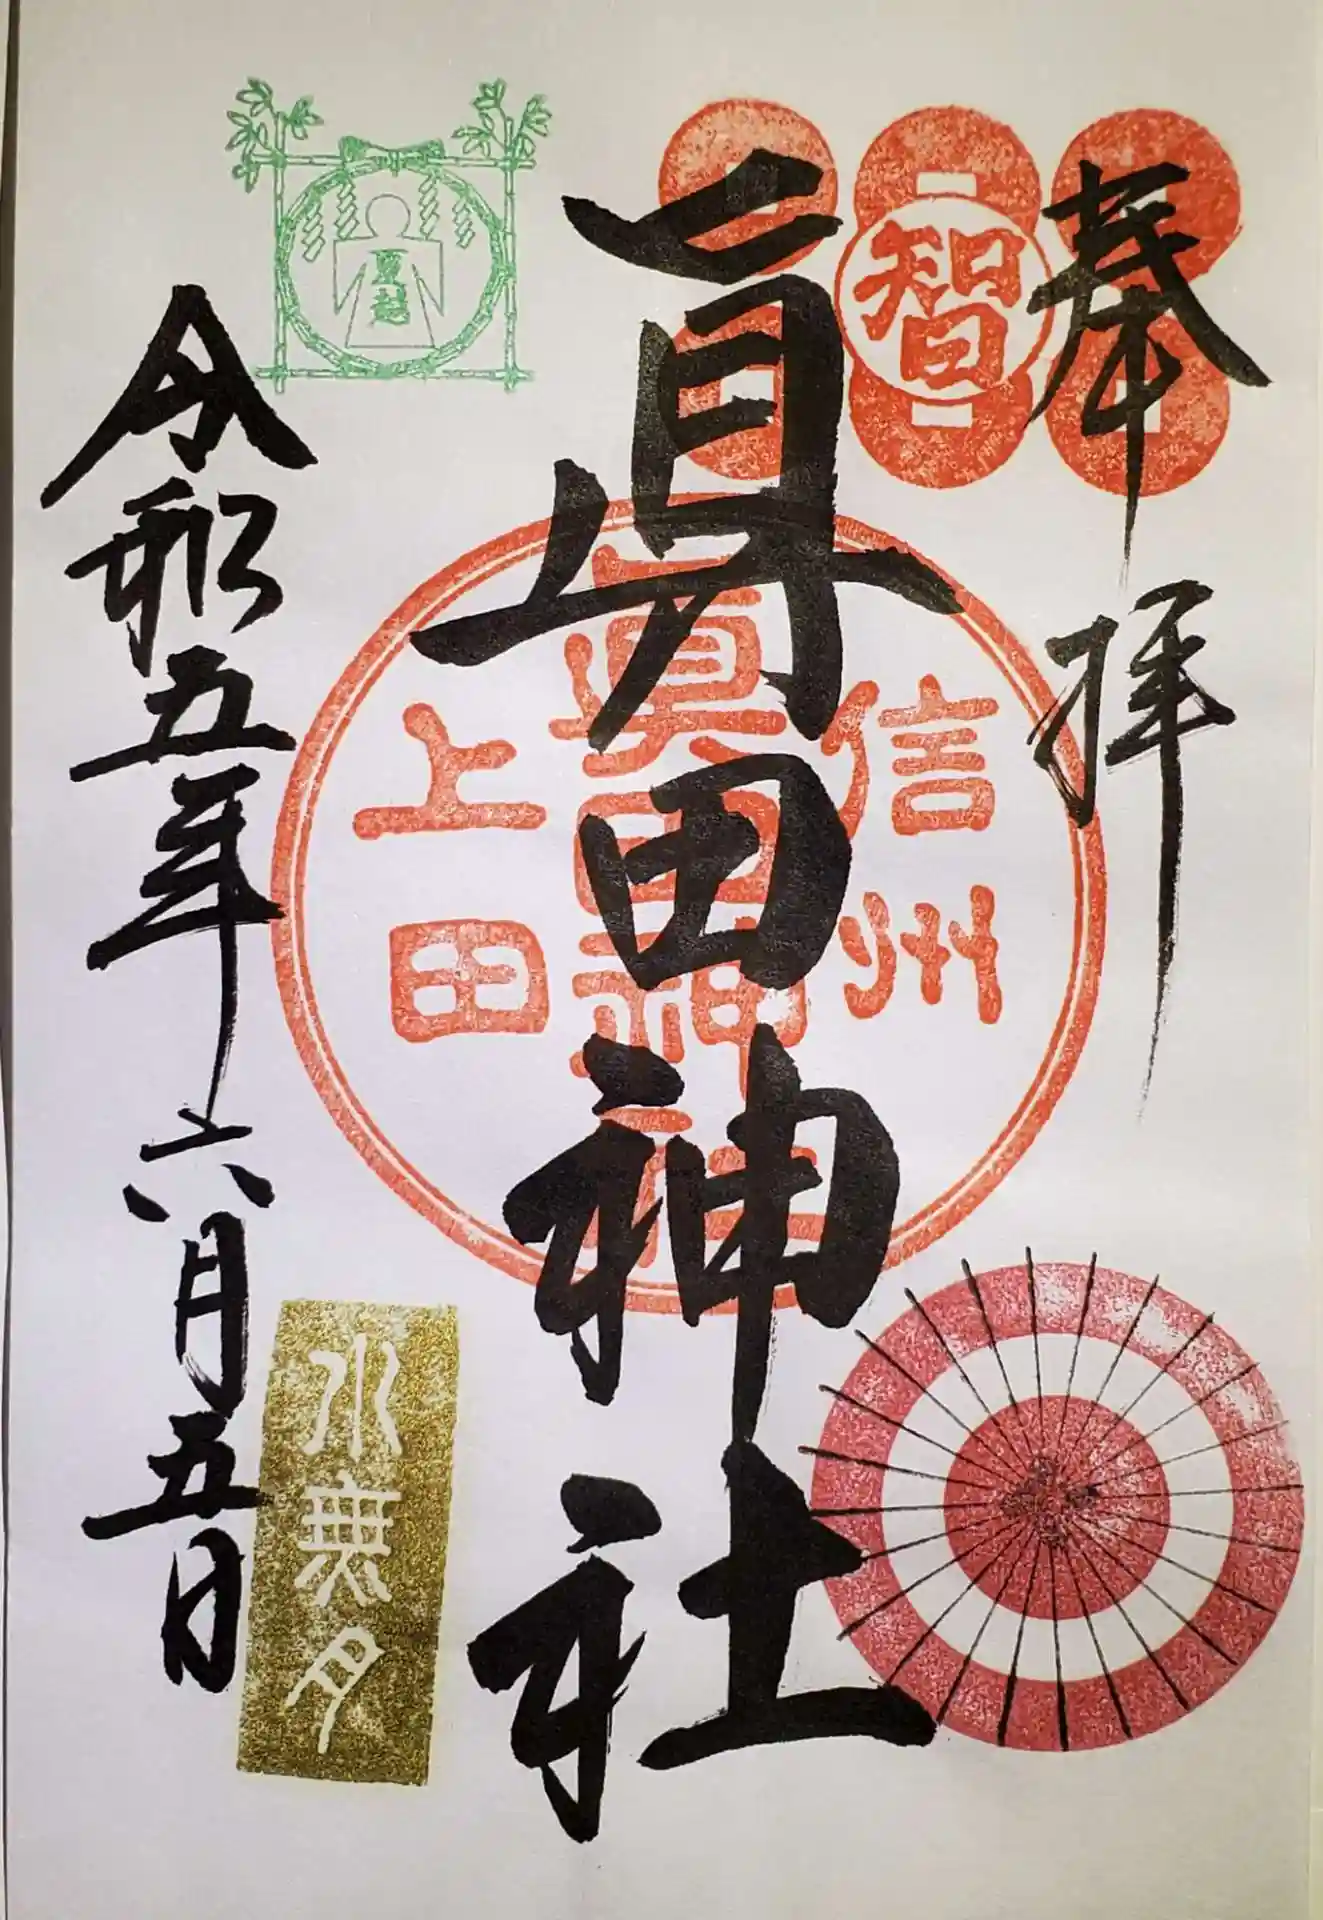 奉拝
智
信州
眞田神社
上田
真田神社
夏越
水無月
令和五年六月五日